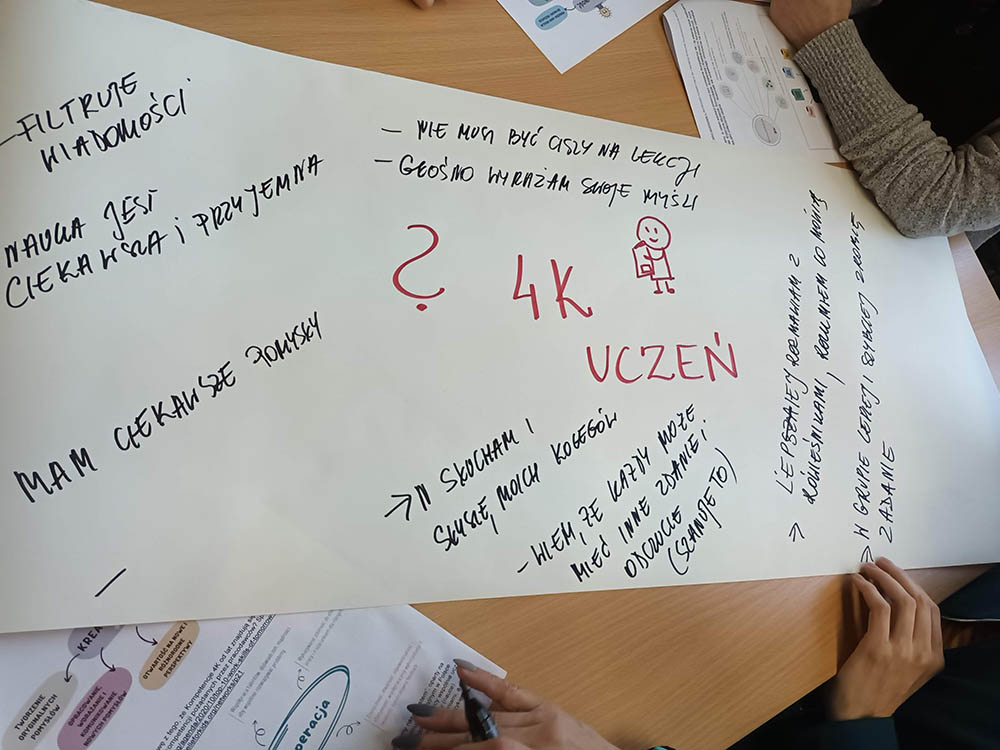 - FILTRUJE
WIADOMOŚCI
NAUKA JEST
CIEKAWSZA I PRZYJEMNA
MAM CIEKAWSZE POMYSŁY
- NIE MUSI BYĆ CISZY NA LEKCJI
- GŁOŚNO WYRAŻAM SWOJE MYŚLI
?
4K
UCZEŃ
→ SŁUCHAM I
SŁYSZĘ MOICH KOLEGÓW
- WIEM, ŻE KAŻDY MOŻE
MIEĆ INNE ZDANIE,
ODCZUCIE
(SZANUJĘ TO)
→ LEPIEJ ROZMAWIAM Z
RÓWIEŚNIKAMI, ROZUMIEM CO MÓWIĄ
→ W GRUPIE LEPIEJ I SZYBCIEJ ZROBIĘ
ZADANIE
TWORZENIE
ORYGINALNYCH
POMYSŁÓW
OPRACOWANIE,
WDRAŻANIE I
KOMUNIKOWANIE
NOWYCH POMYSŁÓW
OTWARTOŚĆ NA NOWE I
RÓŻNORODNE
PERSPEKTYWY